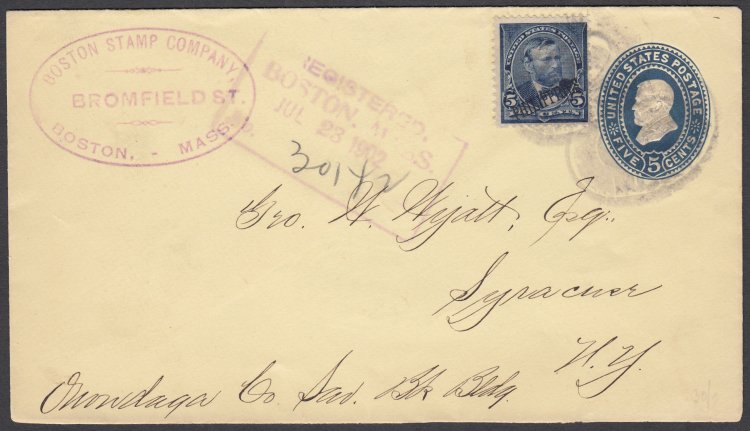 BOSTON STAMP COMPANY,
BROMFIELD ST.
BOSTON, - MASS.
REGISTERED.
BOSTON, MASS.
JUL 23 1902
30142
UNITED STATES OF AMERICA
5 5
CENTS
UNITED STATES POSTAGE
FIVE 5 CENTS
Geo. W. Wyatt, Esq.,
Syracuse
N.Y.
Onondaga Co. Sav. Bk Bldg.